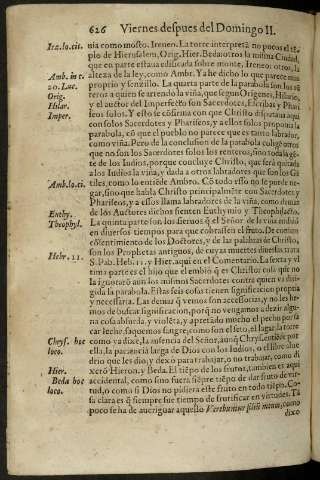 626 Viernes despues del Domingo II.
Ire.lo.cit.
nia como mosto. Ireneo. La torre interpretà no pocos el tẽ-
plo de Hierusalem, Orig. Hier. Beda: otros la misma Ciudad,
que en parte estaua edificada sobre monte. Ireneo: otros, la
Amb. in c.
alteza de la ley, como Ambr. Ya he dicho lo que parece mas
20. Luc.
proprio y senzillo. La quarta parte de la parabola son los rẽ
Orig.
teros a quien se arrendò la viña, que segun Origenes, Hilario,
Hilar.
y el auctor del Imperfecto son Sacerdotes, Escribas y Phari
Imper.
seos solos. Y esto se cõfirma con que Christo disputaua aqui
con solos Sacerdotes y Phariseos, y a ellos solos proponia la
parabola, cõ que el pueblo no parece que es tanto labrador,
como viña. Pero de la conclusion de la parabola coligẽ otros
que no son los Sacerdotes solos los renteros, sino toda la gẽ-
te de los Iudios, porque concluye Christo, que serà quitada
a los Iudios la viña, y dada a otros labradores que son los Gẽ
Amb.lo.ci.
tiles, como lo entiẽde Ambro. Cõ todo esso no se puede ne-
gar, sino que habla Christo principalmẽte con Sacerdotes y
Phariseos, y a essos llama labradores de la viña, como demas
Euthy.
de los Auctores dichos sienten Euthymio y Theophylacto.
Theophyl.
La quinta parte son los sieruos, q̃ el Señor de la viña embiò
en diuersos tiempos para que cobrassen el fruto. De comun
cõsentimiento de los Doctores, y de las palabras de Christo,
son los Prophetas antiguos, de cuyas muertes diuersas trata
Hebr. 11.
S. Pab. Heb. 11. y Hier. aqui en el Comentario. La sexta y vl
tima parte es el hijo que el embiò q̃ es Christo: cosa que no
la ignoraro aun los mismos Sacerdotes contra quien va diri-
gida la parabola. Estas seis cosas tienen significacion propria
y necessaria. Las demas q̃ vemos son accessorias, y no les he-
mos de buscar significacion, porq̃ no vengamos a dezir algu-
na cosa absurda, y violẽta, y apretãdo mucho el pecho por sa
car leche, saquemos sangre; como son el seto, el lagar, la torre
Chrys. hoc
como ya dixe, la ausencia del Señor, aunq̃ Chrys. entiẽde por
loco.
ella, la paciencia larga de Dios con los Iudios, o el libre alue
drio que les dio, y dexò para trabajar, o no trabajar, como di
Hier.
xerõ Hieron. y Beda. El tiẽpo de los frutos, tambien es aqui
Beda hoc
accidental, como sino fuera siẽpre tiẽpo de dar fruto de vir-
loco.
tud, o como si Dios no pidiera este fruto en todo tiẽpo. Co-
sa clara es q̃ siempre fue tiempo de frutificar en virtudes. Tã
poco se ha de aueriguar aquello Verebuntur filium meum, como
dixo